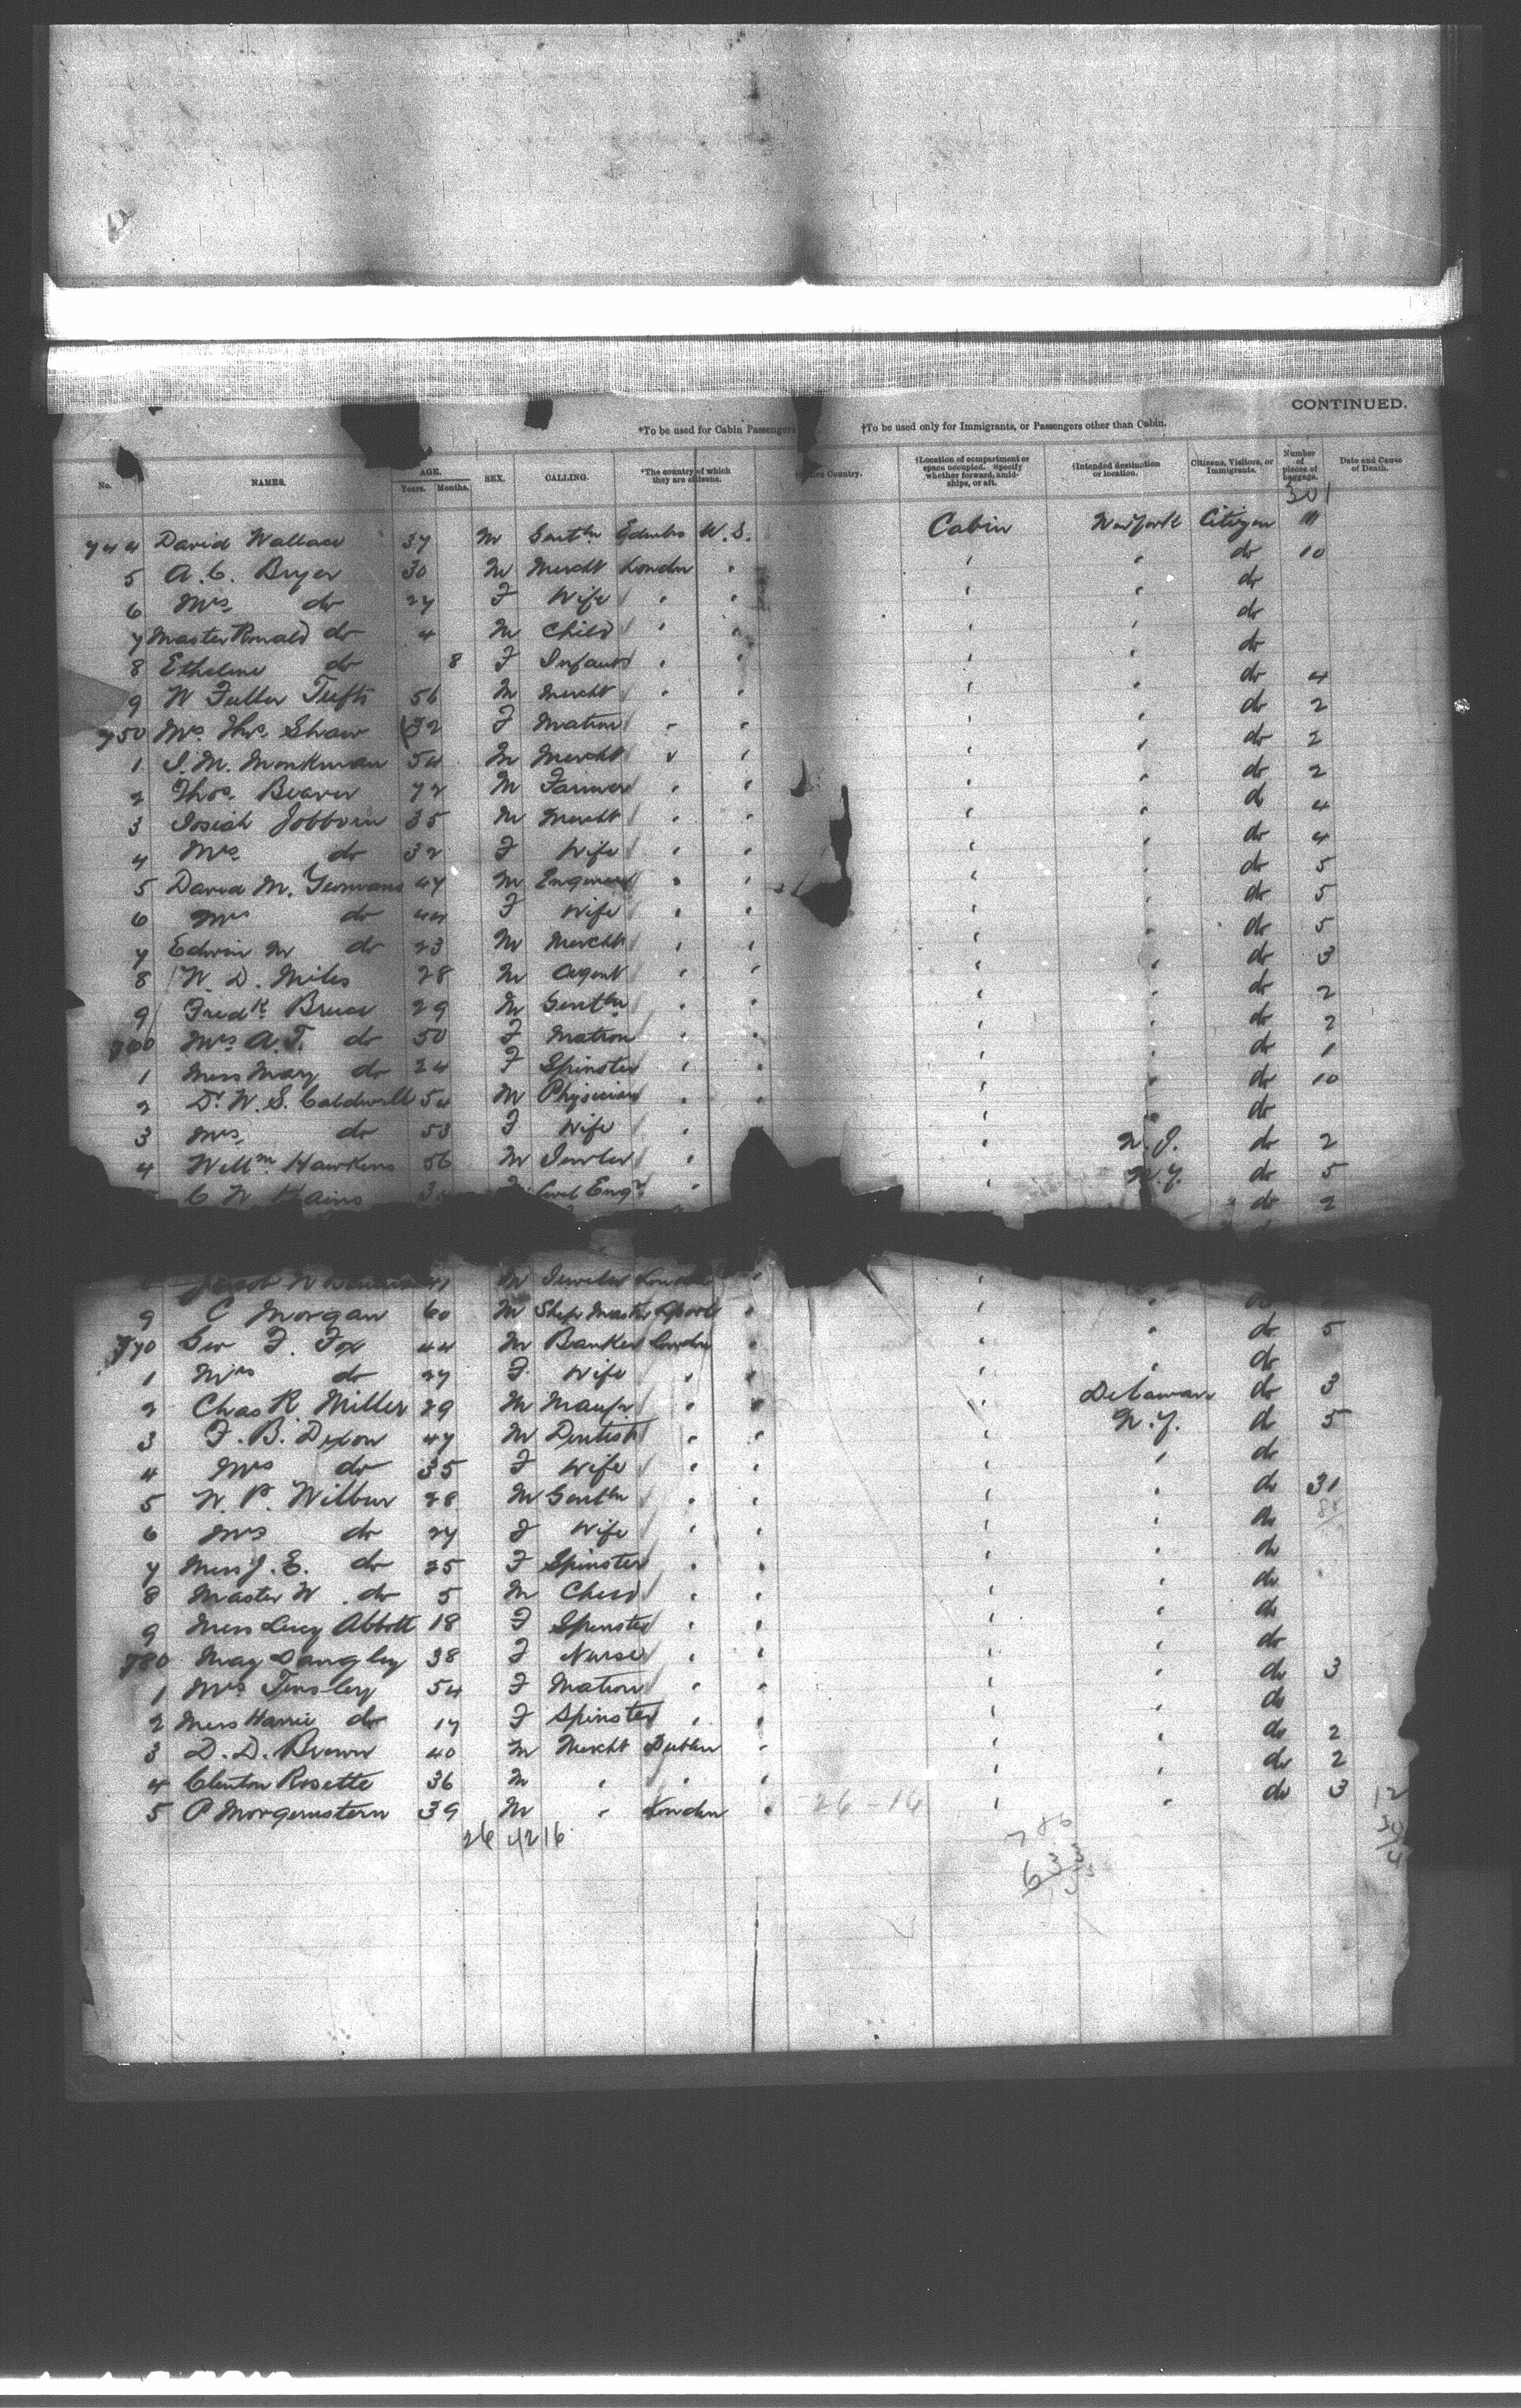 CONTINUED.
*To be used for Cabin Passengers †To be used only for Immigrants, or Passengers other than Cabin.
No. NAMES. AGE. Years. Months. SEX. CALLING. *The country of which they are citizens. Country. †Location of compartment or space occupied. Specify whether forward, amidships, or aft. †Intended destination or location. Citizens, Visitors, or Immigrants. Number of pieces of baggage. Date and Cause of Death.
301
744 David Wallace 37 M Gentln Edinbro U.S. Cabin New York Citizen
5 A. C. 30 M Mercht London " " " do 10
6 Mrs do 27 F Wife " " " " do
7 Master Ronald do 4 M Child " " " " do
8 Etheline do 8 F Infant " " " " do
9 W Fuller Tufts 56 M Mercht " " " " do 4
750 Mrs Thos. Shaw 32 F Matron " " " " do 2
1 J. M. Monkman 54 M Mercht " " " " do 2
2 Thos. Beaver 72 M Farmer " " " " do 2
3 Josiah 35 M Mercht " " " " do 4
4 Mrs do 32 F Wife " " " " do 4
5 David M. 47 M Engineer " " " " do 5
6 Mrs do 44 F Wife " " " " do 5
7 Edwin M do 23 M Mercht " " " " do 5
8 W. D. Miles 28 M Agent " " " " do 3
9 Fredk Bruce 29 M Gentln " " " " do 2
760 Mrs A. T. do 50 F Matron " " " " do 2
1 Miss Mary do 24 F Spinster " " " " do 1
2 Dr W. S. Caldwell 54 M Physician " " " " do 10
3 Mrs do 53 F Wife " " do
4 Willm Hawkins 56 M Jewler " " N.J. do 2
C W Hains M Civil Engr " " N.Y. do 5
do 2
Jacob M Jeweler London "
9 C Morgan 60 M Ship Master Lpool " " "
770 Geo F. Fox 44 M Banker London " " " do 5
1 Mrs do 27 F Wife " " " " do
2 Chas R Miller 29 M Manfr " " " Delaware do 3
3 F. B. Dixon 47 M Dentist " " " N.Y. do 5
4 Mrs do 35 F Wife " " " " do
5 W. P. Wilbur 28 M Gentln " " " do 31
6 Mrs do 27 F Wife " " " do
7 Miss J. E. do 25 F Spinster " " " do
8 Master W. do 5 M Child " " " " do
9 Miss Lucy Abbott 18 F Spinster " " " " do
780 May Langley 38 F Nurse " " " " do
1 Mrs Tinsley 54 F Matron " " " " do 3
2 Miss Harrie do 17 F Spinster " " " " do
3 D. D. Brown 40 M Mercht Dublin " " " do 2
4 Clinton Rosette 36 M " " " " " do 2
5 P Morgenstern 39 M " London " 26-16 " " do 3
26 42 16
786